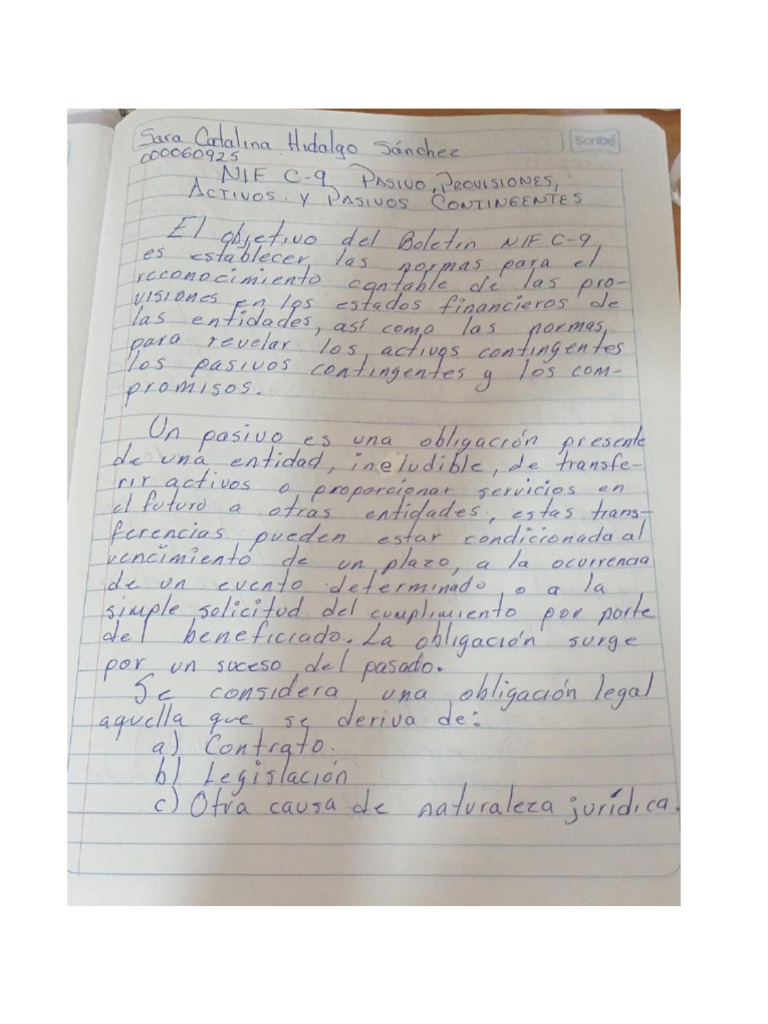 Sara Catalina Hidalgo Sánchez
Scribe
000060925
NIF C-9 PASIVO, PROVISIONES,
ACTIVOS Y PASIVOS CONTINGENTES
El objetivo del Boletin NIF C-9,
es establecer las normas para el
reconocimiento contable de las pro-
visiones en los estados financieros de
las entidades, así como las normas
para revelar los activos contingentes
los pasivos contingentes y los com-
promisos.
Un pasivo es una obligación presente
de una entidad, ineludible, de transfe-
rir activos o proporcionar servicios en
el futuro a otras entidades, estas trans-
ferencias pueden estar condicionada al
vencimiento de un plazo, a la ocurrencia
de un evento determinado, o a la
simple solicitud del cumplimiento por parte
del beneficiado. La obligación surge
por un suceso del pasado.
Se considera una obligación legal
aquella que se deriva de:
a) Contrato.
b) Legislación
c) Otra causa de naturaleza jurídica.